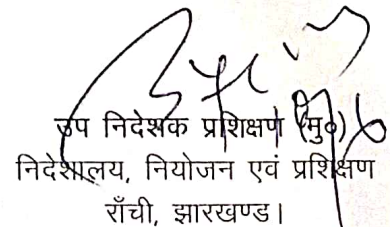 उप निदेशक प्रशिक्षण (मु०)
निदेशालय, नियोजन एवं प्रशिक्षण
राँची, झारखण्ड।